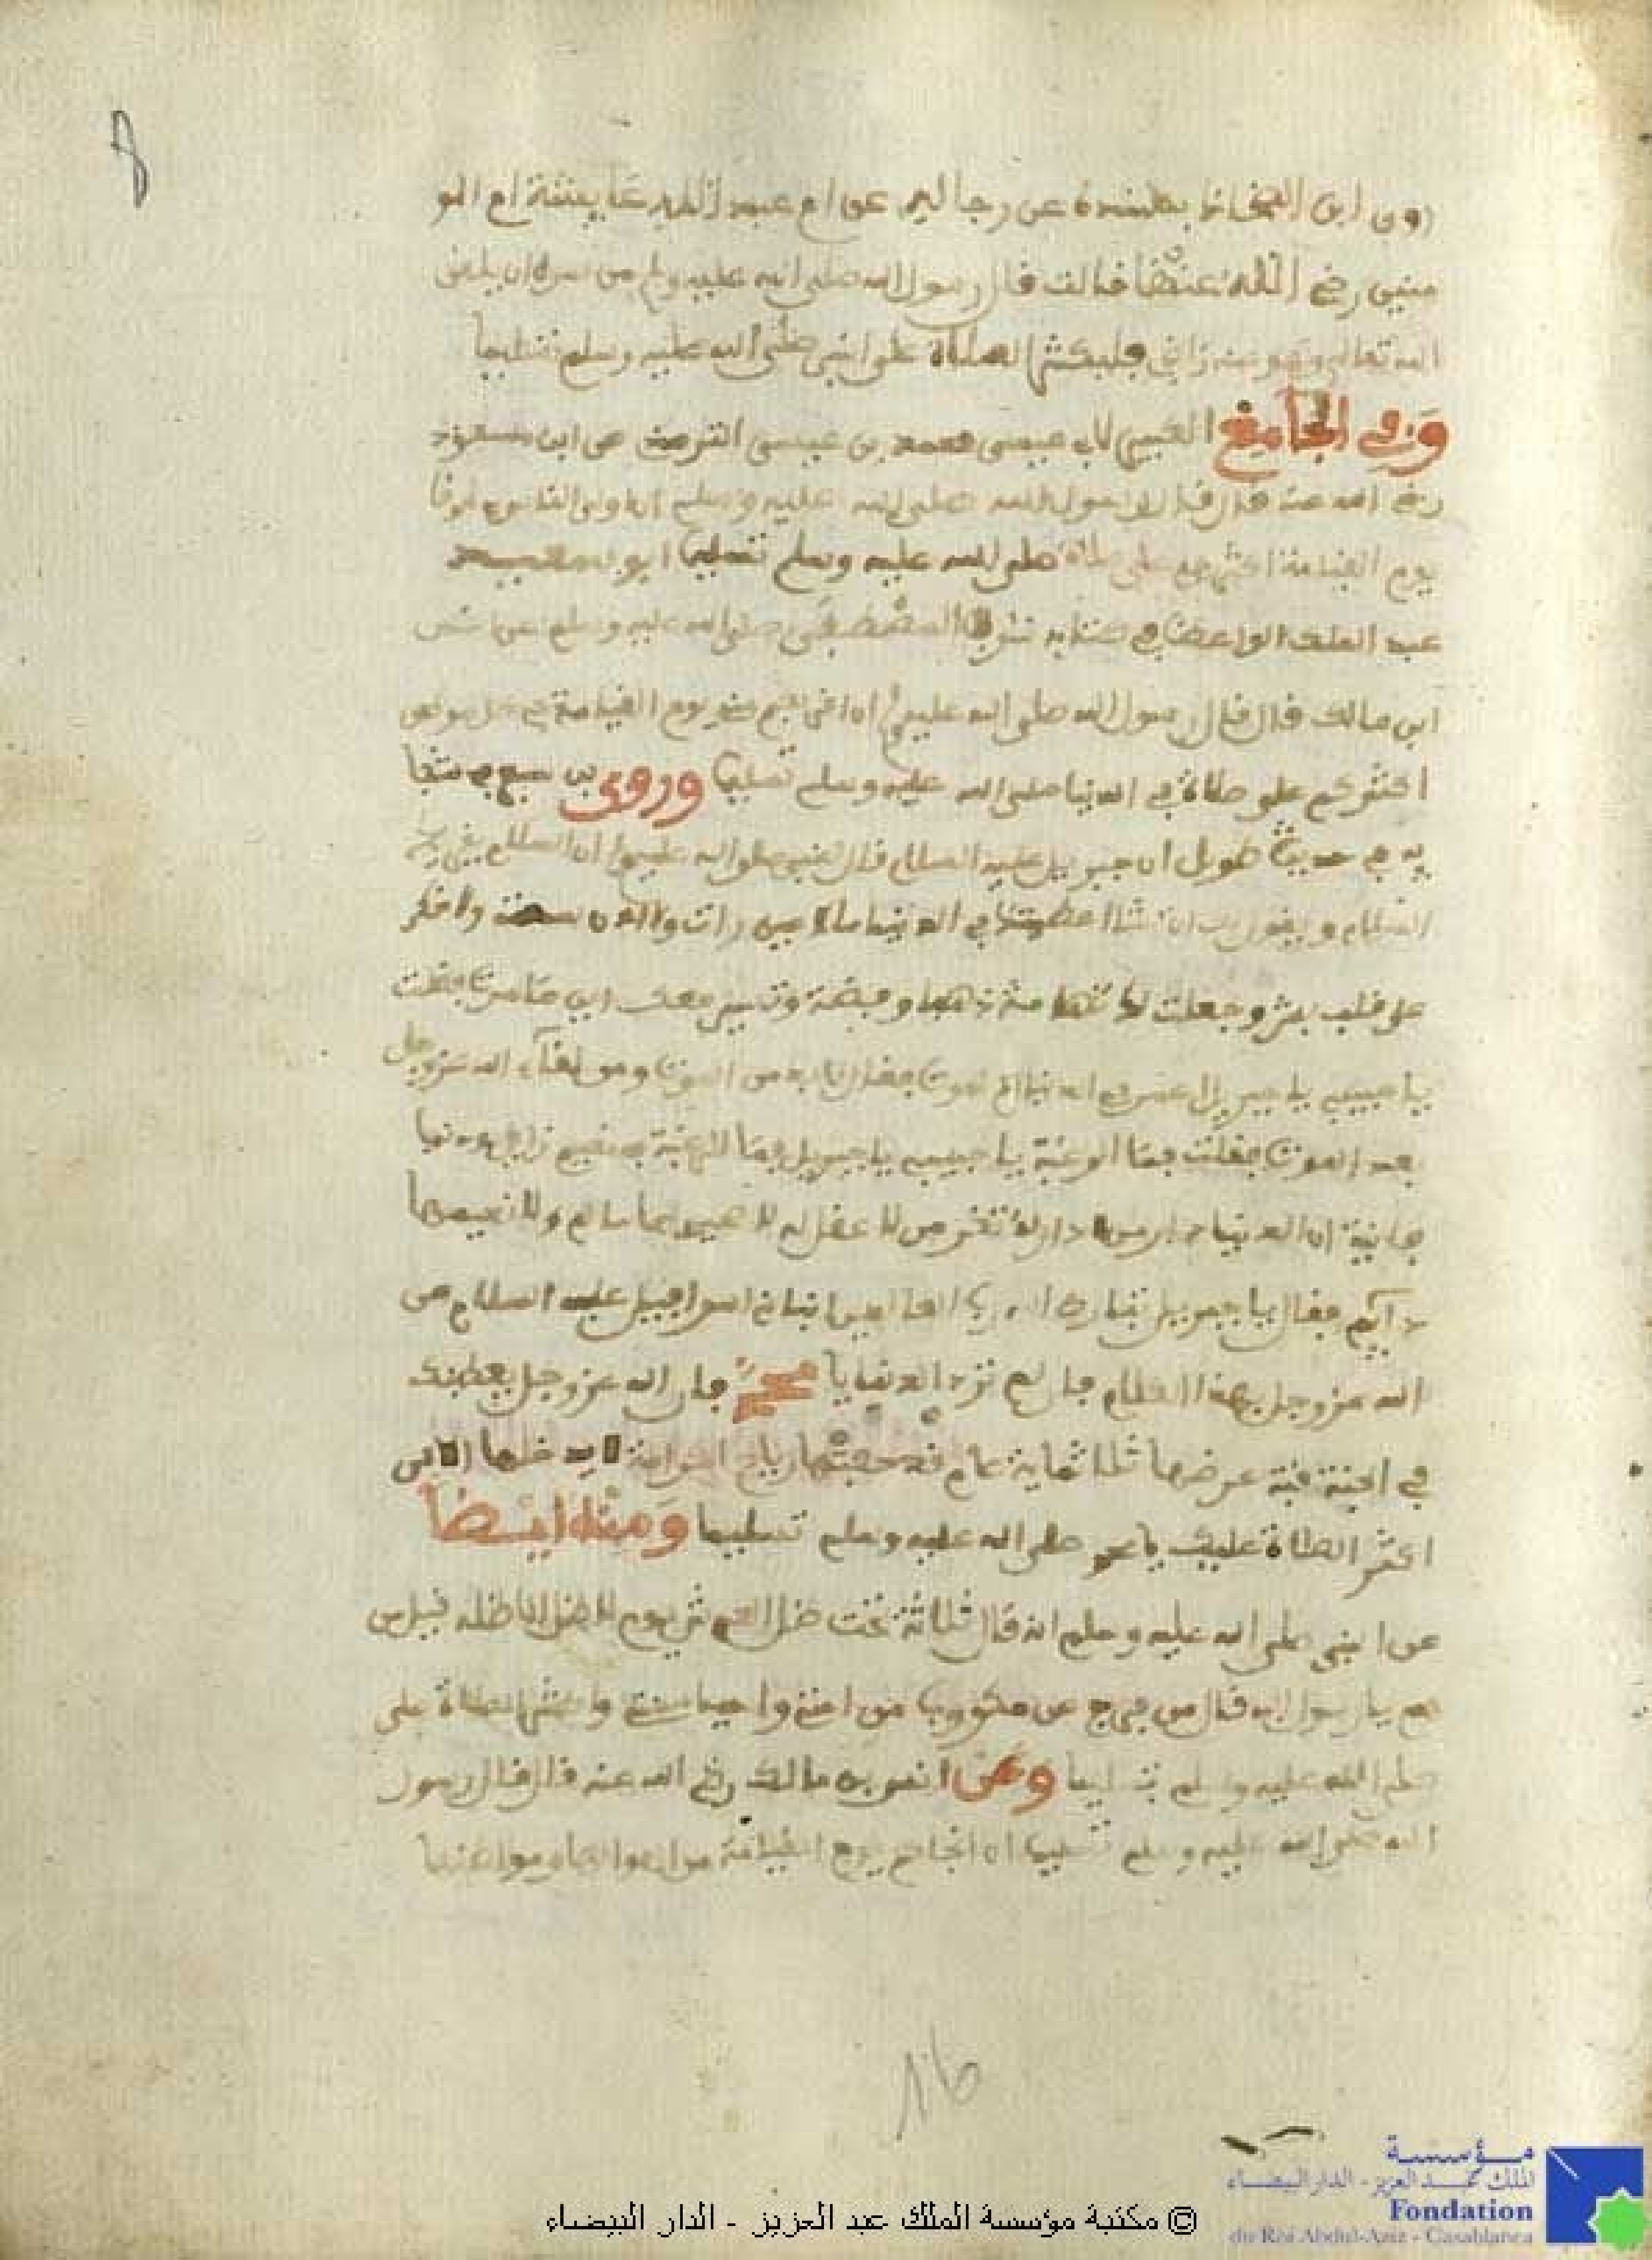 8
روى ابن الضحاك بسنده عن رجاله عن ام عبد الله عايشة ام المو
منين رضي الله عنها قالت قال رسول الله صلى الله عليه وسلم من سره ان يلقى
الله تعالى وهو عنه راض فليكثر الصلاة على النبي صلى الله عليه وسلم تسليما
وفي الجامع الكبير لابي عيسى محمد بن عيسى الترمذي عن ابن مسعود
رضي الله عنه قال قال رسول الله صلى الله عليه وسلم ان اولى الناس بي
يوم القيامة اكثرهم علي صلاة صلى الله عليه وسلم تسليما ابو سعيد
عبد الملك الواعظ في كتابه شرف المصطفى صلى الله عليه وسلم عن انس
ابن مالك قال قال رسول الله صلى الله عليه وسلم ان اقربكم مني يوم القيامة في كل موطن
اكثركم علي صلاة في الدنيا صلى الله عليه وسلم تسليما وروى بن سبع في شفا
يه في حديث طويل ان جبريل عليه السلام قال للنبي صلى الله عليه وسلم ان السلام
السلام ويقول ان شئت اعطيتك في الدنيا ما لا عين رات ولا اذن سمعت ولا خطر
على قلب بشر وجعلت لك ذهبا وفضة وتسير معك اين ما سرت فقلت
يا حبيبي يا جبريل اليس في الدنيا الموت فقال لا بد من الموت ومن لقاء الله عز وجل
بعد الموت فقلت فما الرغبة يا حبيبي يا جبريل فما الرغبة في نعيم زايل ودنيا
فانية ان الدنيا دار من لا دار له تغر من لا عقل له لا لنعيمها
دايم فقال يا جبريل تبارك الله رب العالمين اتاني اسرافيل عليه السلام من
الله عز وجل بهذا الكلام فان لم ترد الدنيا يا محمد فان الله عز وجل يعطيك
في الجنة قبة عرضها ثلاثماية عام قد حفتها رياح الكرامة لا يدخلها الا من
اكثر الصلاة عليك يا محمد صلى الله عليه وسلم تسليما ومنه ايضا
عن النبي صلى الله عليه وسلم انه قال ثلاثة تحت ظل العرش يوم لا ظل الا ظله قيل من
هم يا رسول الله قال من فرج عن مكروب من امتي واحيا سنتي واكثر الصلاة علي
صلى الله عليه وسلم تسليما وعن انس بن مالك رضي الله عنه قال قال رسول
الله صلى الله عليه وسلم تسليما ان انجاكم يوم القيامة من اهوالها ومواطنها
16
مؤسسة
الملك عبد العزيز - الدار البيضاء
Fondation
du Roi Abdul-Aziz - Casablanca
© مكتبة مؤسسة الملك عبد العزيز - الدار البيضاء